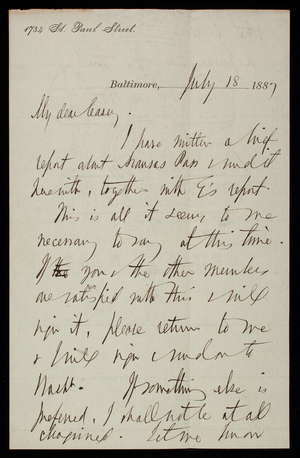 1734 St. Paul Street.
Baltimore, July 18 1887
My dear Casey.
I have written a brief
report about Aransas Pass & send it
herewith, together with E's report.
This is all it seems to me
necessary to say at this time.
If you & the other members
are satisfied with this & will
sign it, please return to me
& I will sign & send on to
Washn. If something else is
preferred, I shall not be at all
chagrined. Let me know